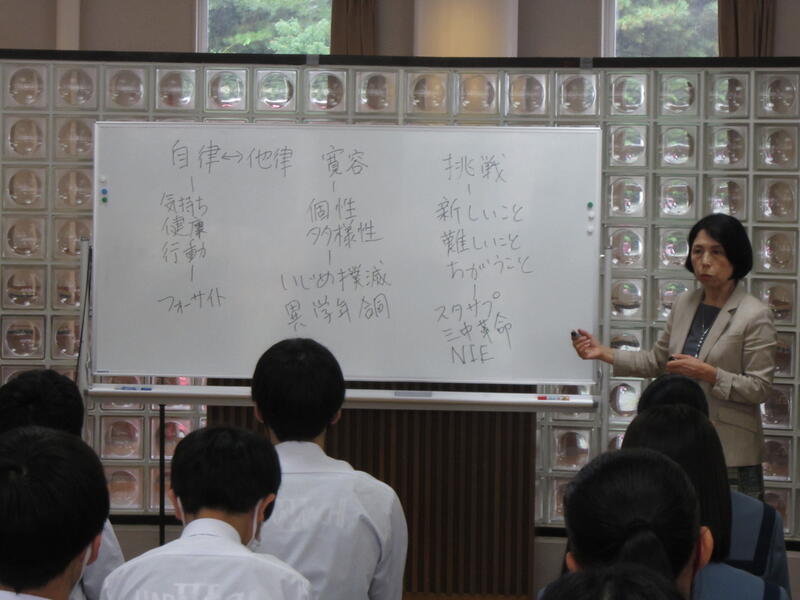 自律↔他律
気持ち
健康
行動
フォーサイト
寛容
個性
多様性
いじめ撲滅
異学年合同
挑戦
新しいこと
難しいこと
ちがうこと
スタサプ
三中革命
NIE